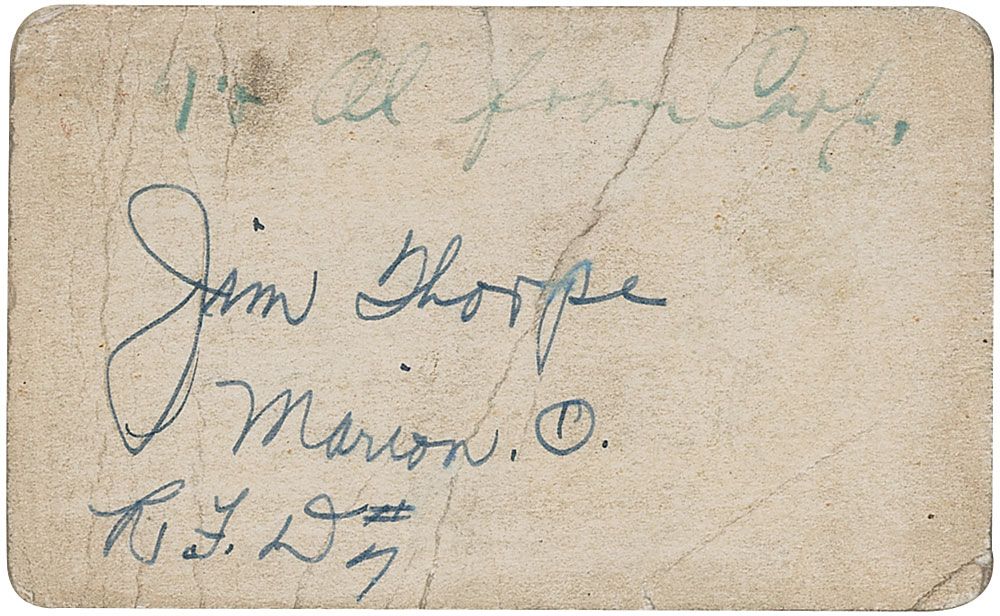 To Al from Capt.
Jim Thorpe
Marion. O.
R. F. D #7